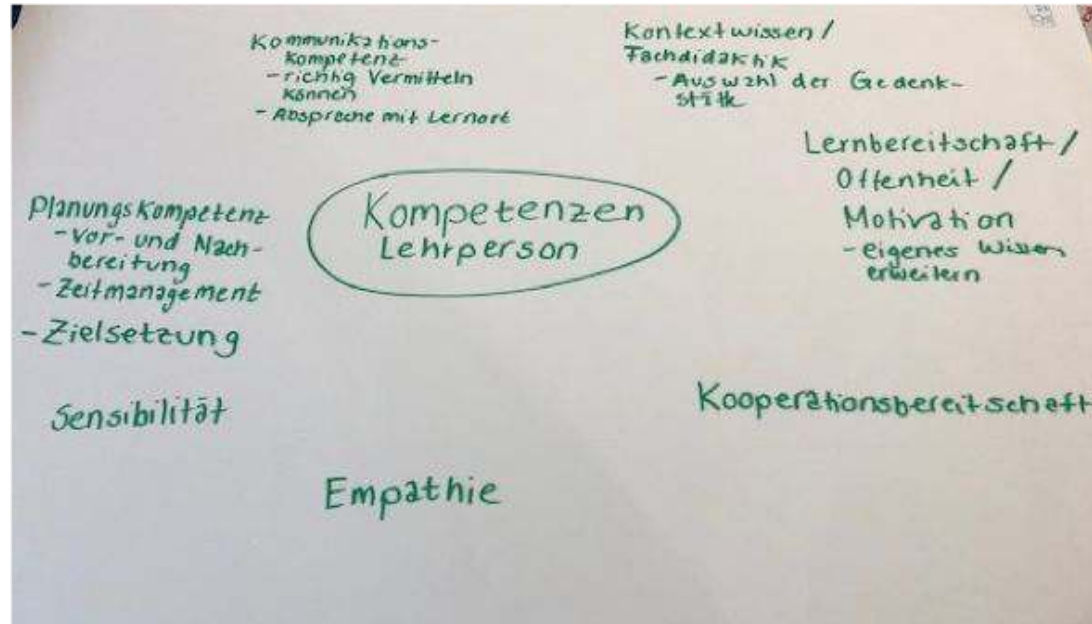 Kommunikations-
kompetenz
- richtig Vermitteln
können
- Absprache mit Lernort
Kontextwissen /
Fachdidaktik
- Auswahl der Gedenk-
stätte
Lernbereitschaft /
Offenheit /
Motivation
- eigenes Wissen
erweitern
Planungskompetenz
- Vor- und Nach-
bereitung
- Zeitmanagement
- Zielsetzung
Kompetenzen
Lehrperson
Sensibilität
Kooperationsbereitschaft
Empathie